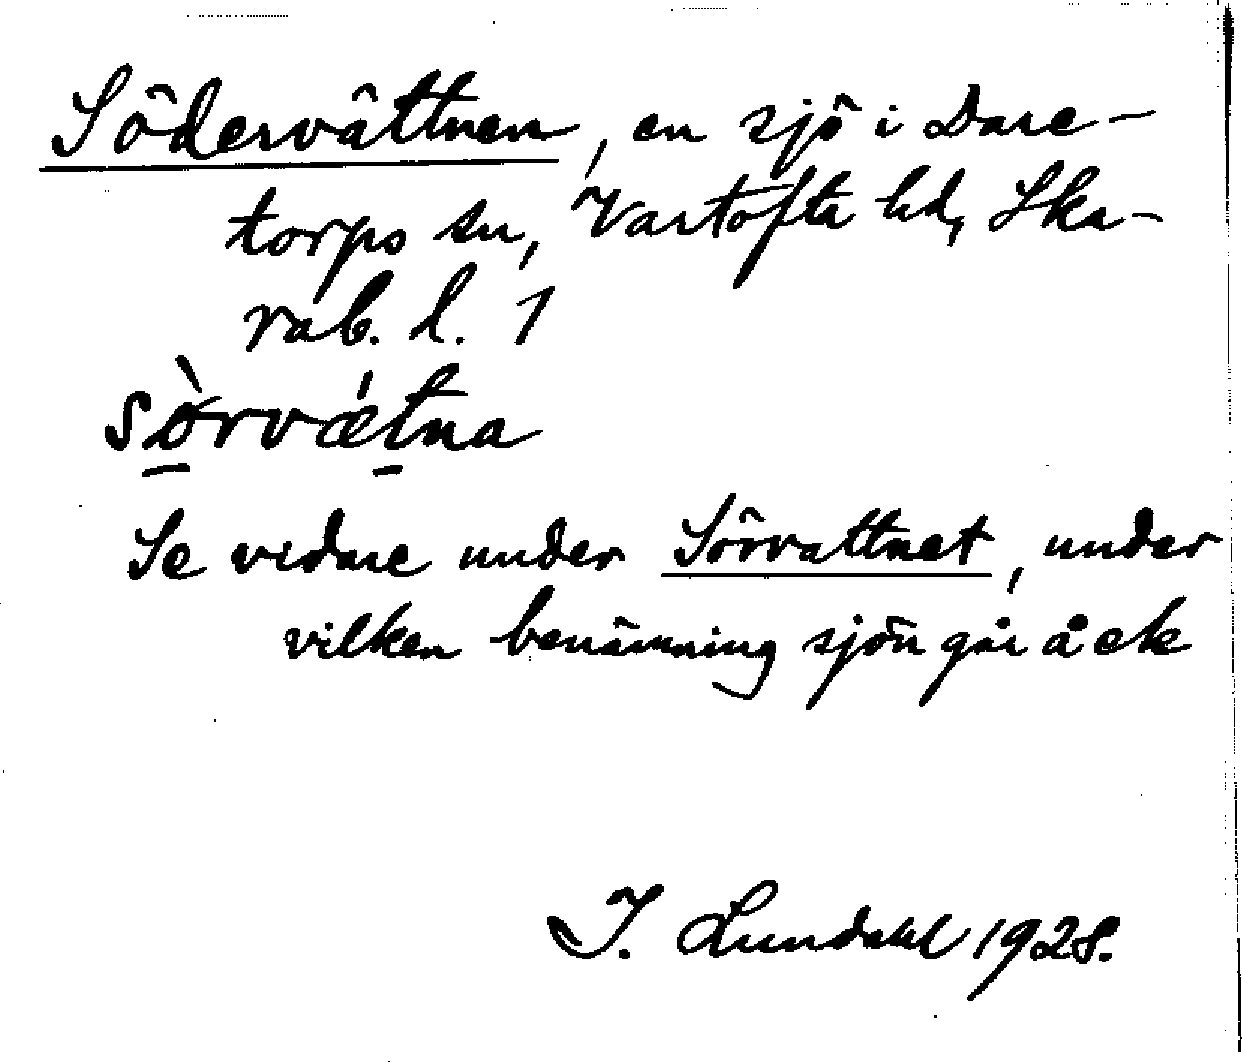 Södervättnen, en sjö i Dare-
torps sn, Vartofta hd, Ska-
rab. l. 1
sö̀rvǽtna
Se vidare under Sörvattnet, under
vilken benämning sjön går å ek
I. Lundahl 1928.